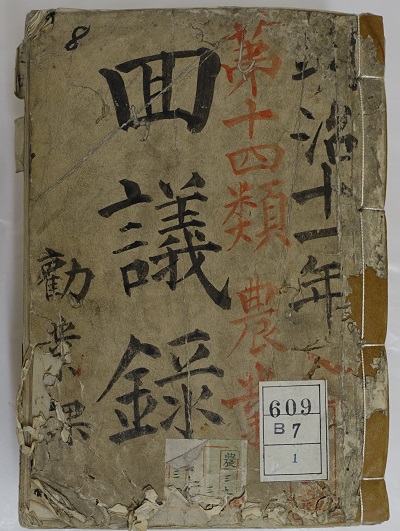 明治十一年
第十四類 農業
回議録
勸業課
8
609
B 7
1
農